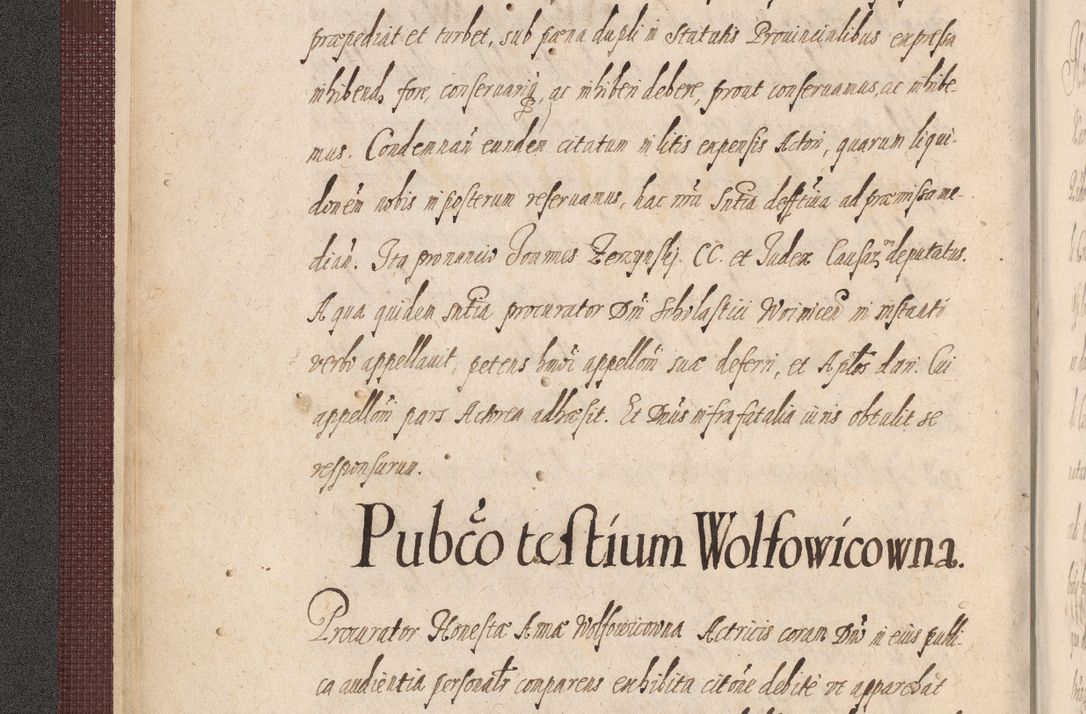 præpediat et turbet, sub pœna dupli in Statutis Prouincialibus expressa
inhibend, fore, conseruariq, ac inhiberi debere, prout conseruamus, ac inhibe-
mus. Condemnań eunden citatum in litis expensis Actori, quarum liqui-
donem nobis in posterum reseruamus, hac nrã Sntia deffttiua ad præmissa me-
diań. Ita pronuncio Joannes Zerzynskj CC. et Judex Causar̃ deputatus.
A qua quidem sntia procurator Dni Scholastici Woinicen in instanti
verbo appellauit, petens hmoi appellõni suæ deferri, et Aptos dari. Cui
appellõni pars Actorea adhæsit. Et Dnus infra fatalia iuris obtulit se
responsurum.
Pubcõ testium Wolfowicowna.
Procurator Honestæ Annæ Wolfowicowna Actricis coram Dno in eius publi-
ca audientia personalr comparens exhibita citõne debite vt apparebat